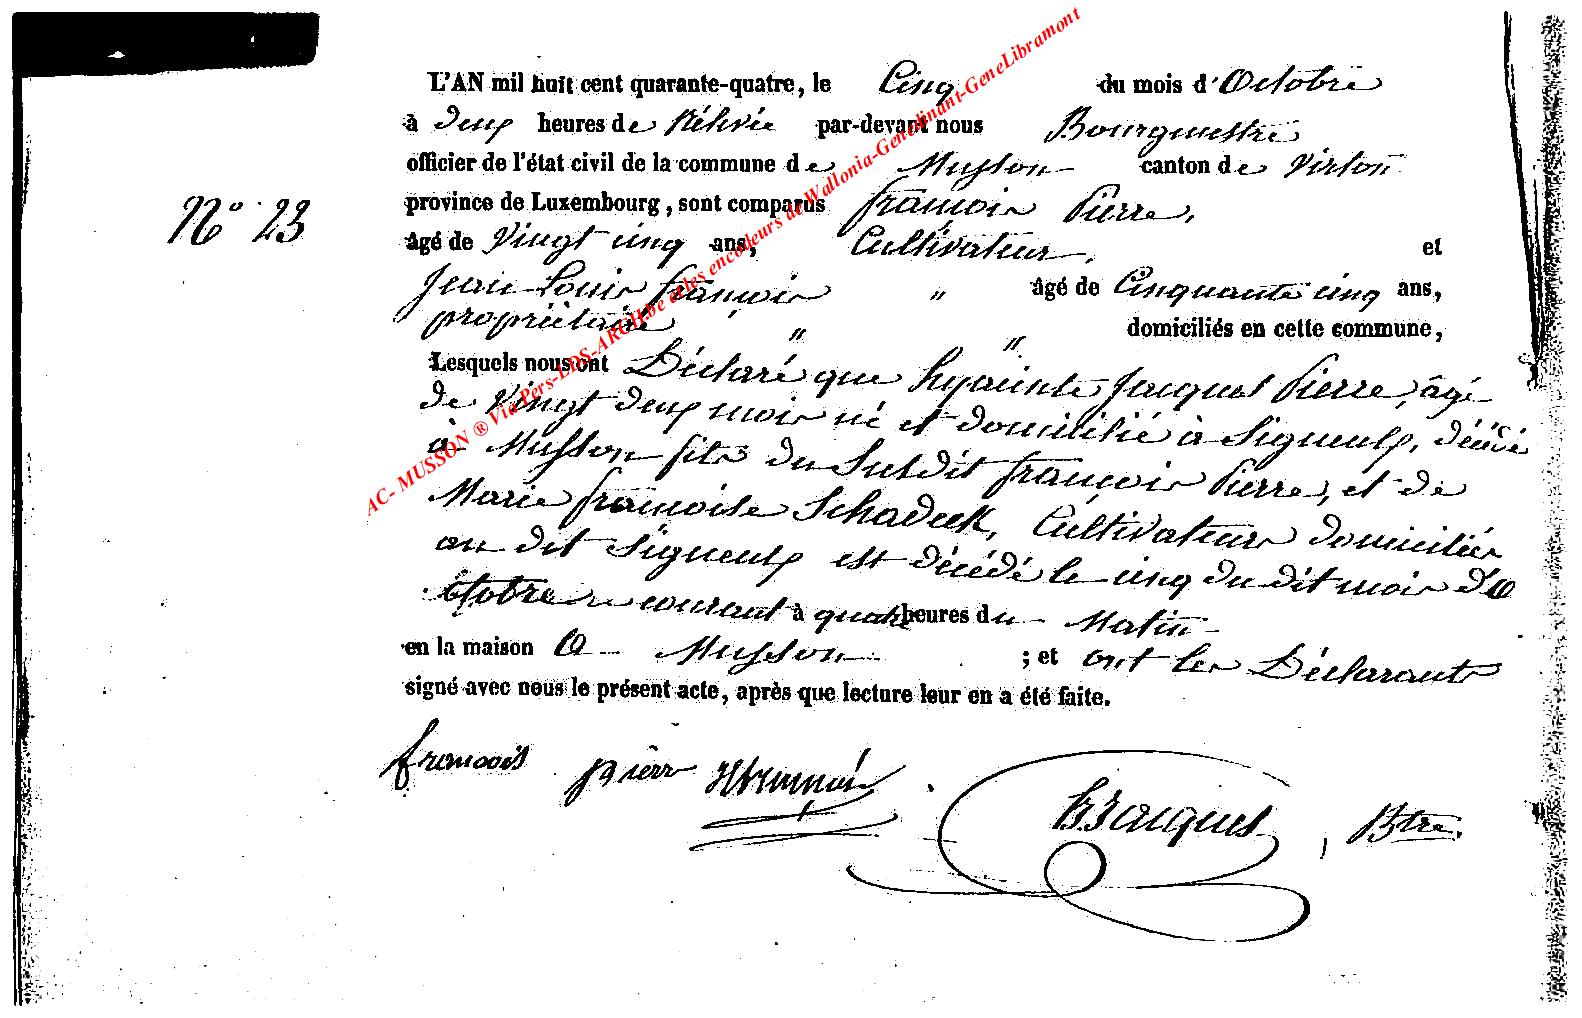 L'AN mil huit cent quarante-quatre, le Cinq du mois d'Octobre
à deux heures de Rélevée par-devant nous Bourguestre
officier de l'état civil de la commune de Musson canton de Virton
N° 23
province de Luxembourg, sont comparus françois Pierre,
âgé de Vingt cinq ans, Cultivateur, et
Jean Louis françois " âgé de Cinquante cinq ans,
propriétaire " " domiciliés en cette commune,
Lesquels nous ont Déclaré que hyacinte Jacques Pierre, âgé
de Vingt deux mois né et domicilié à Signeulx, décédé
à Musson fils du Susdit françois Pierre, et de
Marie françoise Schadeck, Cultivateurs domiciliés
au dit Signeulx est décédé le cinq du dit mois d'O
ctobre courant à quatre heures du Matin
en la maison A Musson ; et ont les Déclarants
signé avec nous le présent acte, après que lecture leur en a été faite.
francois pierr Jacques, Btre.
AC- MUSSON ® Via Pers-LDS-ARCH.be et les encodeurs de Wallonia-Genedinant-GeneLibramont